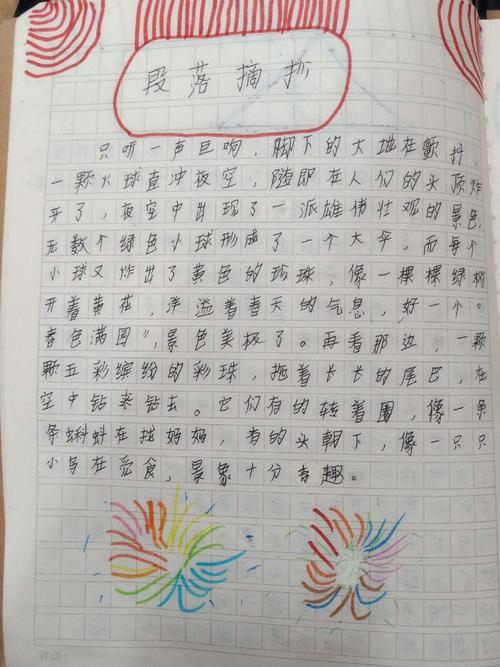 段落摘抄
只听一声巨响，脚下的大地在颤抖
一颗火球直冲夜空，随即在人们的头顶炸
开了，夜空中出现了一派雄伟壮观的景色，
无数个绿色小球形成了一个大伞，而每个
小球又炸出了黄色的珍珠，像一棵棵绿树
开着黄花，洋溢着春天的气息，好一个“
春色满园”，景色美极了。再看那边，一颗
颗五彩缤纷的彩珠，拖着长长的尾巴，在
空中钻来钻去。它们有的转着圈，像一条
条蝌蚪在找妈妈，有的头朝下，像一只只
小鸟在觅食，景象十分有趣。
评语：